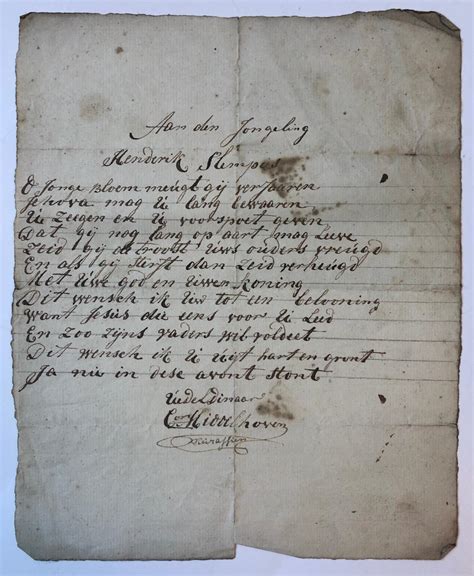 Aan den Jongeling
Henderik Slempes
O Jonge Bloem meugt gij verJaaren
Jehova mag U lang bewaaren
Uw Zeegen en U voorspoet geven
Dat gij nog lang op aart mag leeve
Zeid gij de troost uws ouders vreugd
En als gij sterft dan Zeid verheugd
Met Uwe god en Uwen koning
Dit wensch ik Uw tot een belooning
Want Jesus die eens voor U Leed
En Zoo Zijns vaders wil voldeet
Dit wensch ik U uijt hart en gront
Ja nu in dese avont stont
UedeLdinaar
Cor Middelhoven